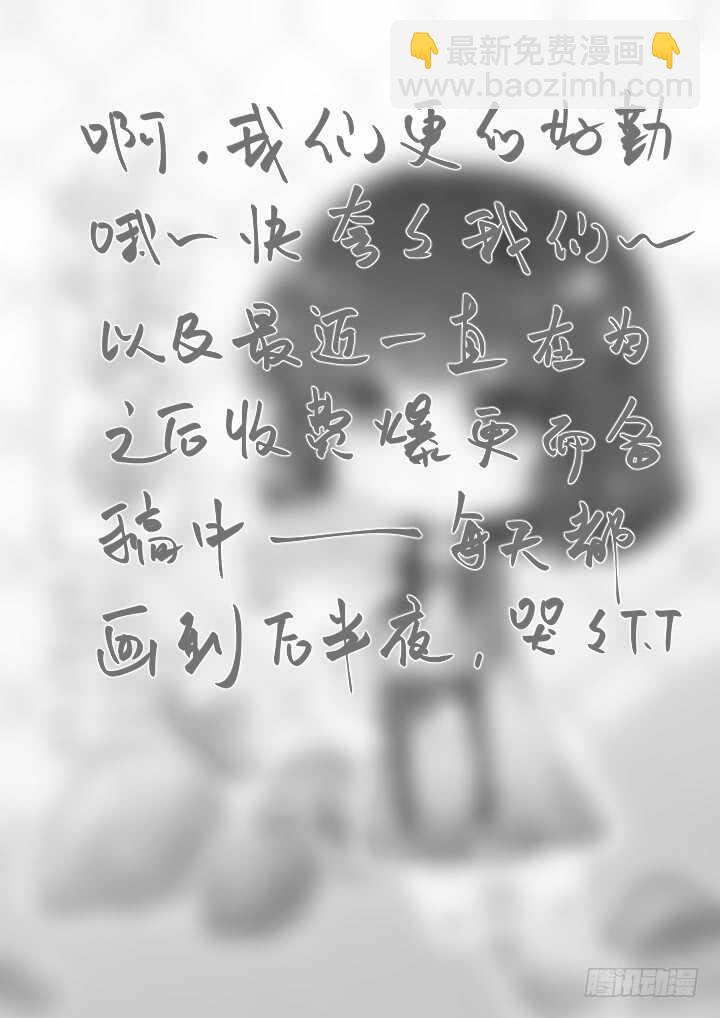 👇最新免费漫画👇
www.baozimh.com
啊.我们更的好勤
哦~快夸々我们~
以及最近一直在为
之后收费爆更而备
稿中——每天都
画到后半夜,哭々T.T
腾讯动漫